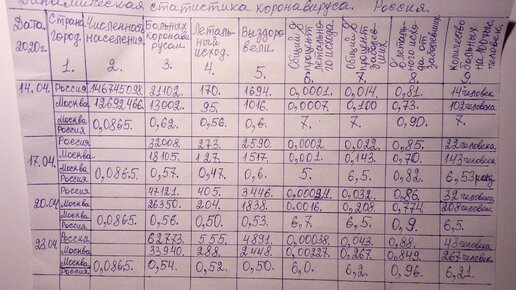 Динамическая статистика коронавируса. Россия.
Дата 2020г. Страна город. Численность населения. Больных коронавирусами. Летальный исход. Выздоровели. Общий % процент летального исхода. Общий % процент заболевших. % летального исхода от заболевших. Количество больных на 100 тыс. человек.
1. 2. 3. 4. 5. 6. 7. 8. 9.
14.04 Россия. 146745098. 21102. 170. 1694. 0,0001. 0,014. 0,81. 14 человек.
Москва 12692466. 13002. 95. 1016. 0,0007. 0,100. 0,73. 102 человека.
Москва Россия 0,0865. 0,62. 0,56. 0,6. 7. 7. 0,90. 7.
17.04. Россия. 32008. 273. 2590. 0,0002. 0,022. 0,85. 22 человека.
Москва 18105. 127. 1517. 0,001. 0,143. 0,70. 143 человека
Москва Россия 0,0865. 0,57. 0,47. 0,6. 5. 6,5. 0,82. 6,53 раз
20.04 Россия. 47121. 405. 3446. 0,00027. 0,032. 0,86. 32 человека
Москва 26350. 204. 1838. 0,0016. 0,208. 0,774. 208 человек
Москва Россия 0,0865. 0,56. 0,50. 0,53. 6,7. 6,5. 0,9. 6,5.
23.04 Россия 62773. 555. 4891. 0,00038. 0,043. 0,88. 43 человека
Москва 33940. 288. 2448. 0,00227. 0,267. 0,849. 267 человек
Москва Россия 0,0865. 0,54. 0,52. 0,50. 6,0. 6,2. 0,96. 6,21.